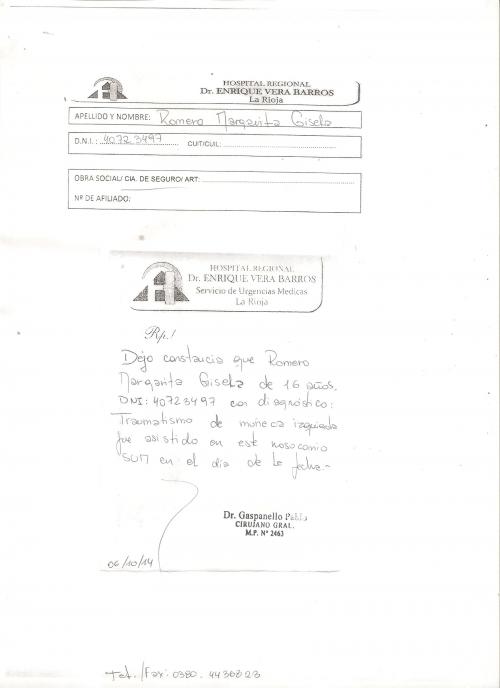 HOSPITAL REGIONAL
Dr. ENRIQUE VERA BARROS
La Rioja
APELLIDO Y NOMBRE: Romero Margarita Gisela
D.N.I.: 40723497 CUIT/CUIL:
OBRA SOCIAL/ CIA. DE SEGURO/ ART:
Nº DE AFILIADO:
HOSPITAL REGIONAL
Dr. ENRIQUE VERA BARROS
Servicio de Urgencias Medicas
La Rioja
Rp./
Dejo constancia que Romero
Margarita Gisela de 16 años.
DNI: 40723497 con diagnóstico:
Traumatismo de muñeca izquierda
fue asistido en este nosocomio
SUM en el día de la fecha.-
Dr. Gaspanello Pablo
CIRUJANO GRAL.
M.P. Nº 2463
06/10/14
Tel./Fax: 0380.